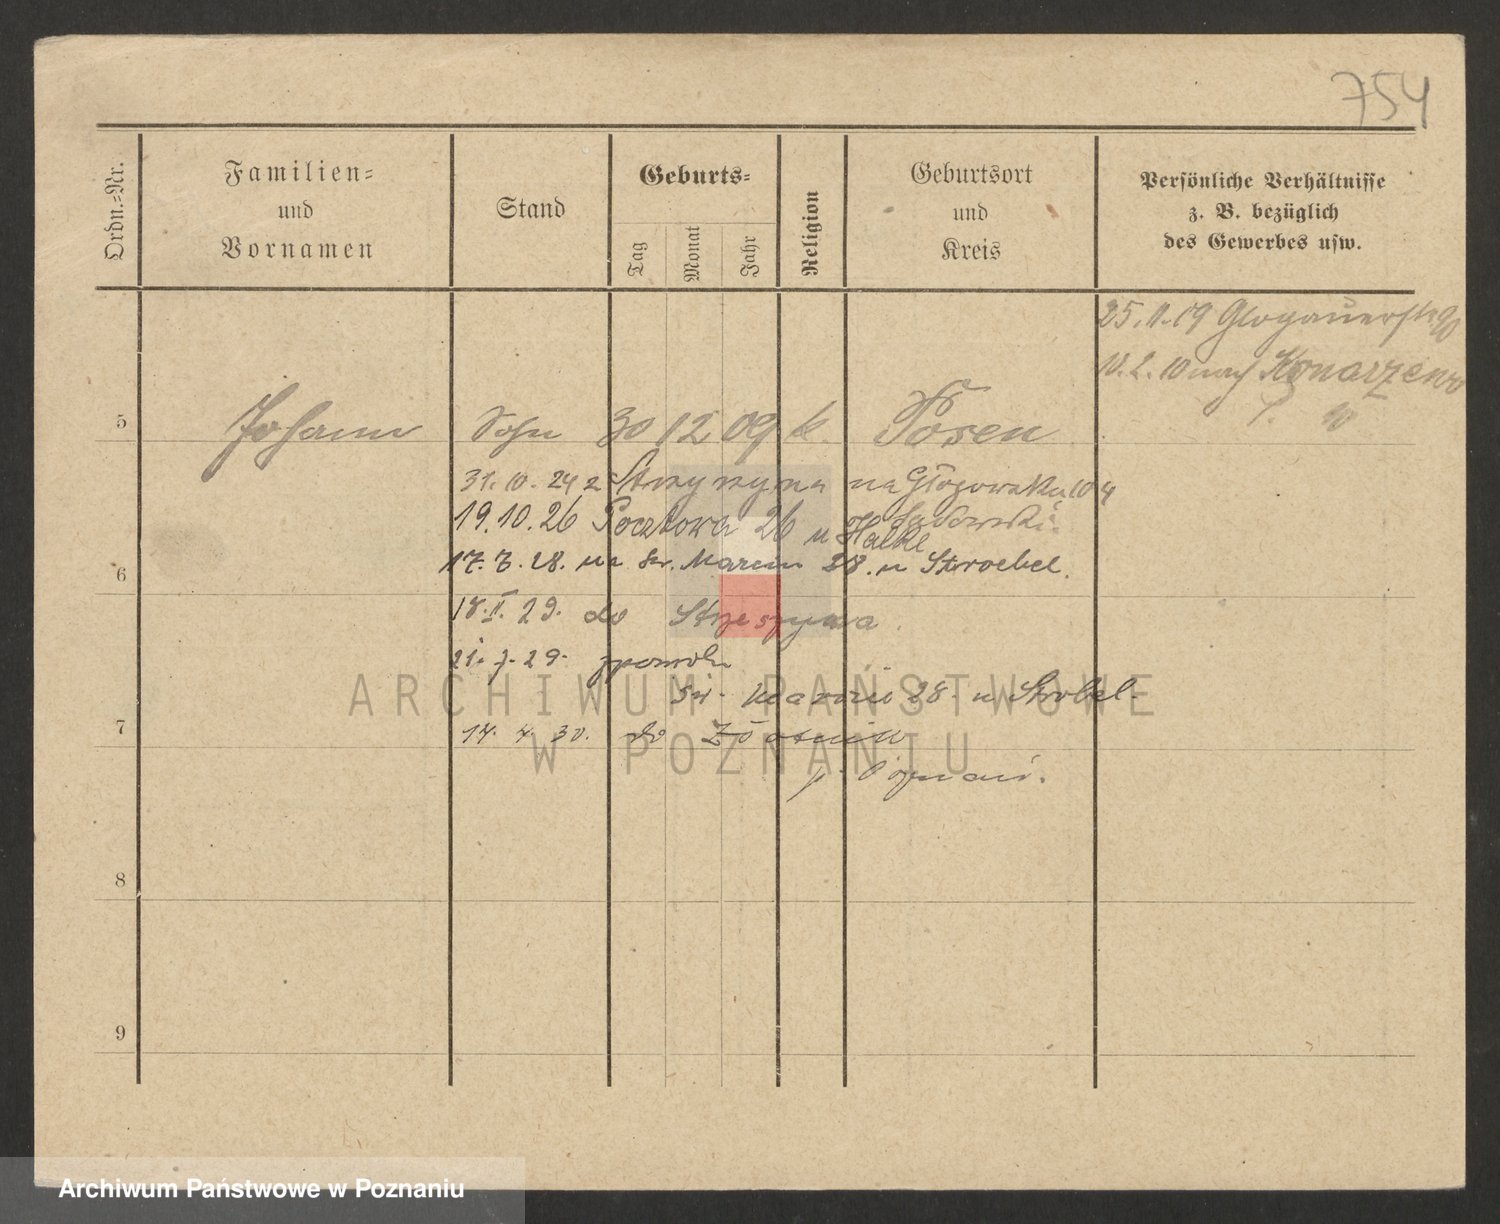 754
Ordn.=Nr.
Familien=
und
Vornamen
Stand
Geburts=
Tag
Monat
Jahr
Religion
Geburtsort
und
Kreis
Persönliche Verhältnisse
z. B. bezüglich
des Gewerbes usw.
25.11.19 Glogauerstr 90
10 nach Konarzewo
5 Johann Sohn 30 12 09 k. Posen
31.10.24 z na Głogowską 104
19.10.26 Pocztowa 26 u Halke
6
17.7.28. na Św. Marcin 28. u Stroebel.
18.II.29. do Strzeszyna
21.7.29.
Św. Marcin 28. u Strobel.
7
14.4.30. do Złotnik
p. Poznań.
8
9
ARCHIWUM PAŃSTWOWE
W POZNANIU
Archiwum Państwowe w Poznaniu